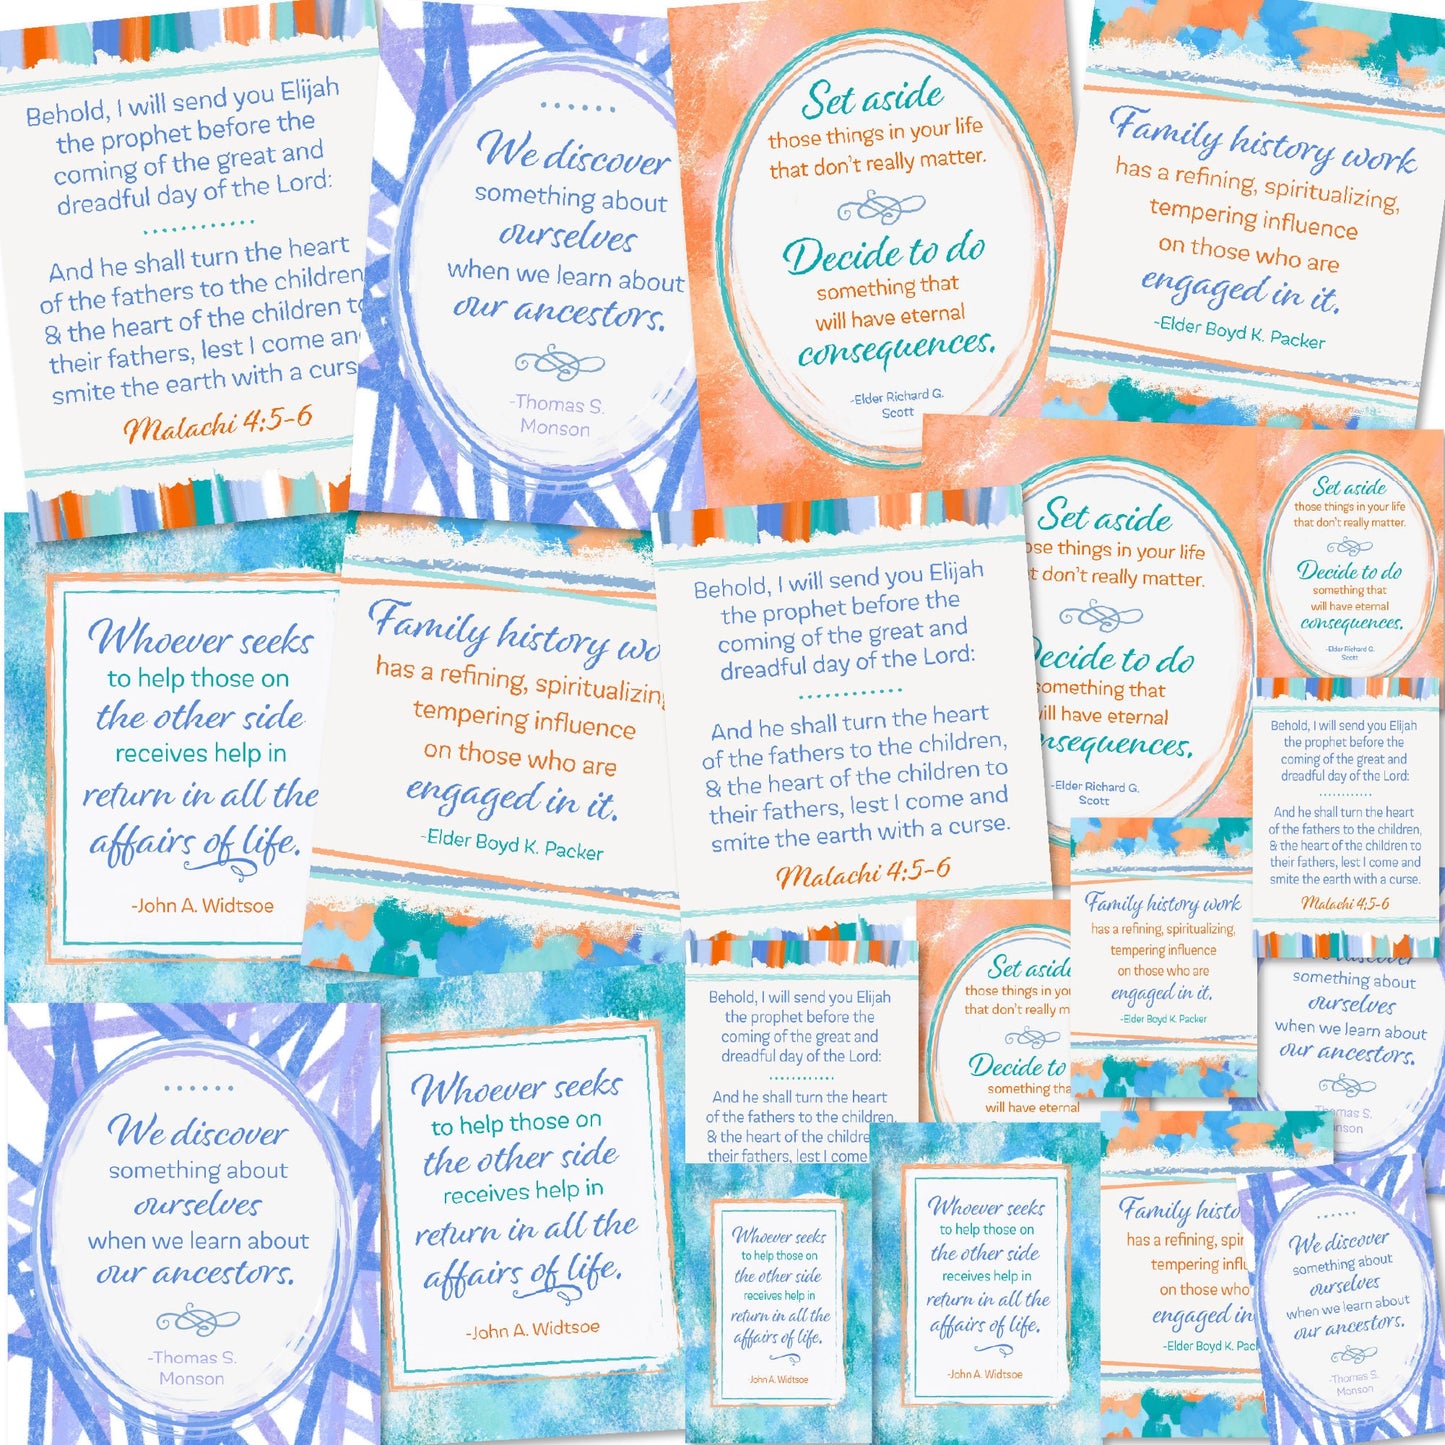 Behold, I will send you Elijah
the prophet before the
coming of the great and
dreadful day of the Lord:
And he shall turn the heart
of the fathers to the children
& the heart of the children to
their fathers, lest I come an
smite the earth with a curs
Malachi 4:5-6
We discover
something about
ourselves
when we learn about
our ancestors.
-Thomas S.
Monson
Set aside
those things in your life
that don't really matter.
Decide to do
something that
will have eternal
consequences.
-Elder Richard G.
Scott
Family history work
has a refining, spiritualizing,
tempering influence
on those who are
engaged in it.
-Elder Boyd K. Packer
Whoever seeks
to help those on
the other side
receives help in
return in all the
affairs of life.
-John A. Widtsoe
Family history wo
has a refining, spiritualizing
tempering influence
on those who are
engaged in it.
-Elder Boyd K. Packer
Behold, I will send you Elijah
the prophet before the
coming of the great and
dreadful day of the Lord:
And he shall turn the heart
of the fathers to the children,
& the heart of the children to
their fathers, lest I come and
smite the earth with a curse.
Malachi 4:5-6
Set aside
ose things in your life
t don't really matter.
Decide to do
something that
ill have eternal
nsequences.
-Elder Richard G.
Scott
Set aside
those things in your life
that don't really matter.
Decide to do
something that
will have eternal
consequences.
-Elder Richard G.
Scott
Behold, I will send you Elijah
the prophet before the
coming of the great and
dreadful day of the Lord:
And he shall turn the heart
of the fathers to the children,
& the heart of the children to
their fathers, lest I come and
smite the earth with a curse.
Malachi 4:5-6
Family history work
has a refining, spiritualizing,
tempering influence
on those who are
engaged in it.
-Elder Boyd K. Packer
Behold, I will send you Elijah
the prophet before the
coming of the great and
dreadful day of the Lord:
And he shall turn the heart
of the fathers to the children,
& the heart of the childre
their fathers, lest I come
Set aside
those things in you
that don't really m
Decide to
something tha
will have eternal
something about
ourselves
when we learn about
our ancestors.
Thomas S.
nson
We discover
something about
ourselves
when we learn about
our ancestors.
-Thomas S.
Monson
Whoever seeks
to help those on
the other side
receives help in
return in all the
affairs of life.
-John A. Widtsoe
Whoever seeks
to help those on
the other side
receives help in
return in all the
affairs of life.
-John A. Widtsoe
Whoever seeks
to help those on
the other side
receives help in
return in all the
affairs of life.
-John A. Widtsoe
Family histo
has a refining, spir
tempering influ
on those who
engaged in
-Elder Boyd K. Pac
We discover
something about
ourselves
when we learn about
our ancestors.
-Thomas S.
Monson